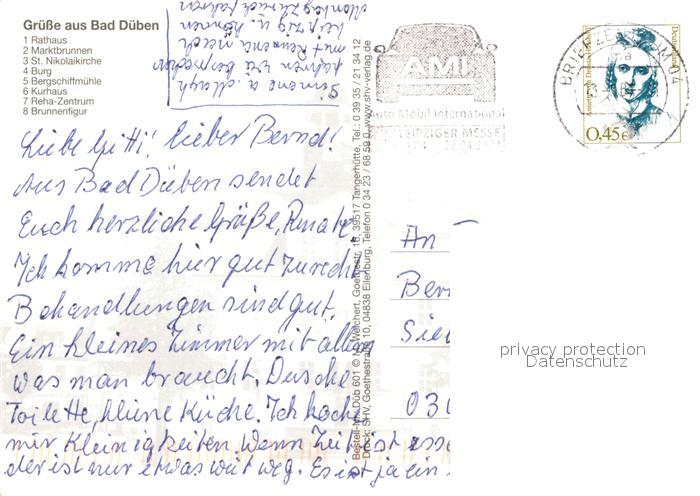 Grüße aus Bad Düben
1 Rathaus
2 Marktbrunnen
3 St. Nikolaikirche
4 Burg
5 Bergschiffmühle
6 Kurhaus
7 Reha-Zentrum
8 Brunnenfigur
Simone a. Magh
fahren wir
mit Renate nach
Leipzig u. können
Montag zurück fahren
Liebe Gitti! Lieber Bernd!
Aus Bad Düben sendet
Euch herzliche Grüße, Renate.
Ich komme hier gut zurecht
Behandlungen sind gut.
Ein kleines Zimmer mit allem
was man braucht. Dusche
Toilette, kleine Küche. Ich koche
mir Kleinigkeiten. Wenn Zeit ist esse
der ist nur etwas weit weg. Es ist ja ein
Bestell-Nr. Düb 601 © M. Weichert, Goethestr. 16, 39517 Tangerhütte, Tel.: 0 39 35 / 21 34 12
Druck: SHV, Goethestraße 10, 04838 Eilenburg, Telefon 0 34 23 / 68 59 0, www.shv-verlag.de
AMI
Auto Mobil International
LEIPZIGER MESSE
BRIEFZENTRUM 04
Deutschland
0,45€
An
Ber
Sie
030
privacy protection
Datenschutz